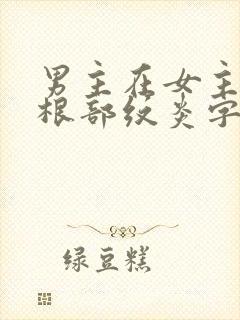 男主在女主
根部纹炎字
绿豆糕